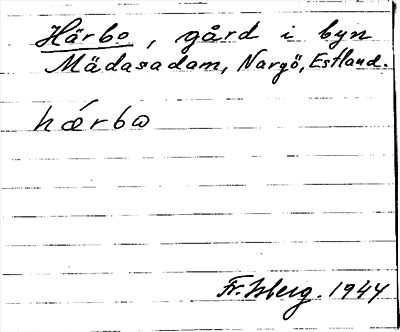 Härbo, gård i byn
Mädasadam, Nargö, Estland.
hǽrbω
Fr. Isberg. 1944